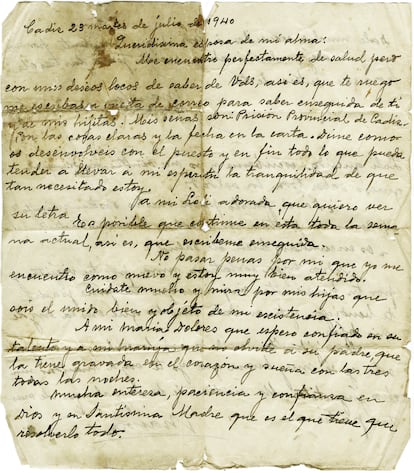 Cadiz 23 martes de julio de 1940
Queridisima esposa de mi alma:
Me encuentro perfectamente de salud pero
con mis deseos locos de saber de Vds, asi es, que te ruego
me escribas a vuelta de correo para saber enseguida de ti
y de mis hijitas. Mis señas son: Prision Provincial de Cadiz.
Pon las cosas claras y la fecha en la carta. Dime como
os desenvolveis con el puesto y en fin todo lo que pueda
tender a llevar a mi espiritu la tranquilidad de que
tan necesitado estoy.
a mi adorada, que quiero ver
su letra
Es posible que continue en esta toda la sema
na actual, asi es, que escribeme enseguida.
No pasar penas por mi que yo me
encuentro como nuevo y estoy muy bien atendido.
Cuidate mucho y mira por mis hijas que
sois el unico bien y objeto de mi existencia.
A mi Maria Dolores que espero confiado en su
talento y a mi que no olvide a su padre, que
la tiene gravada en el corazón y sueña con las tres
todas las noches.
Mucha entereza, paciencia y confianza en
Dios y en Santisima Madre que es el que tiene que
resolverlo todo.